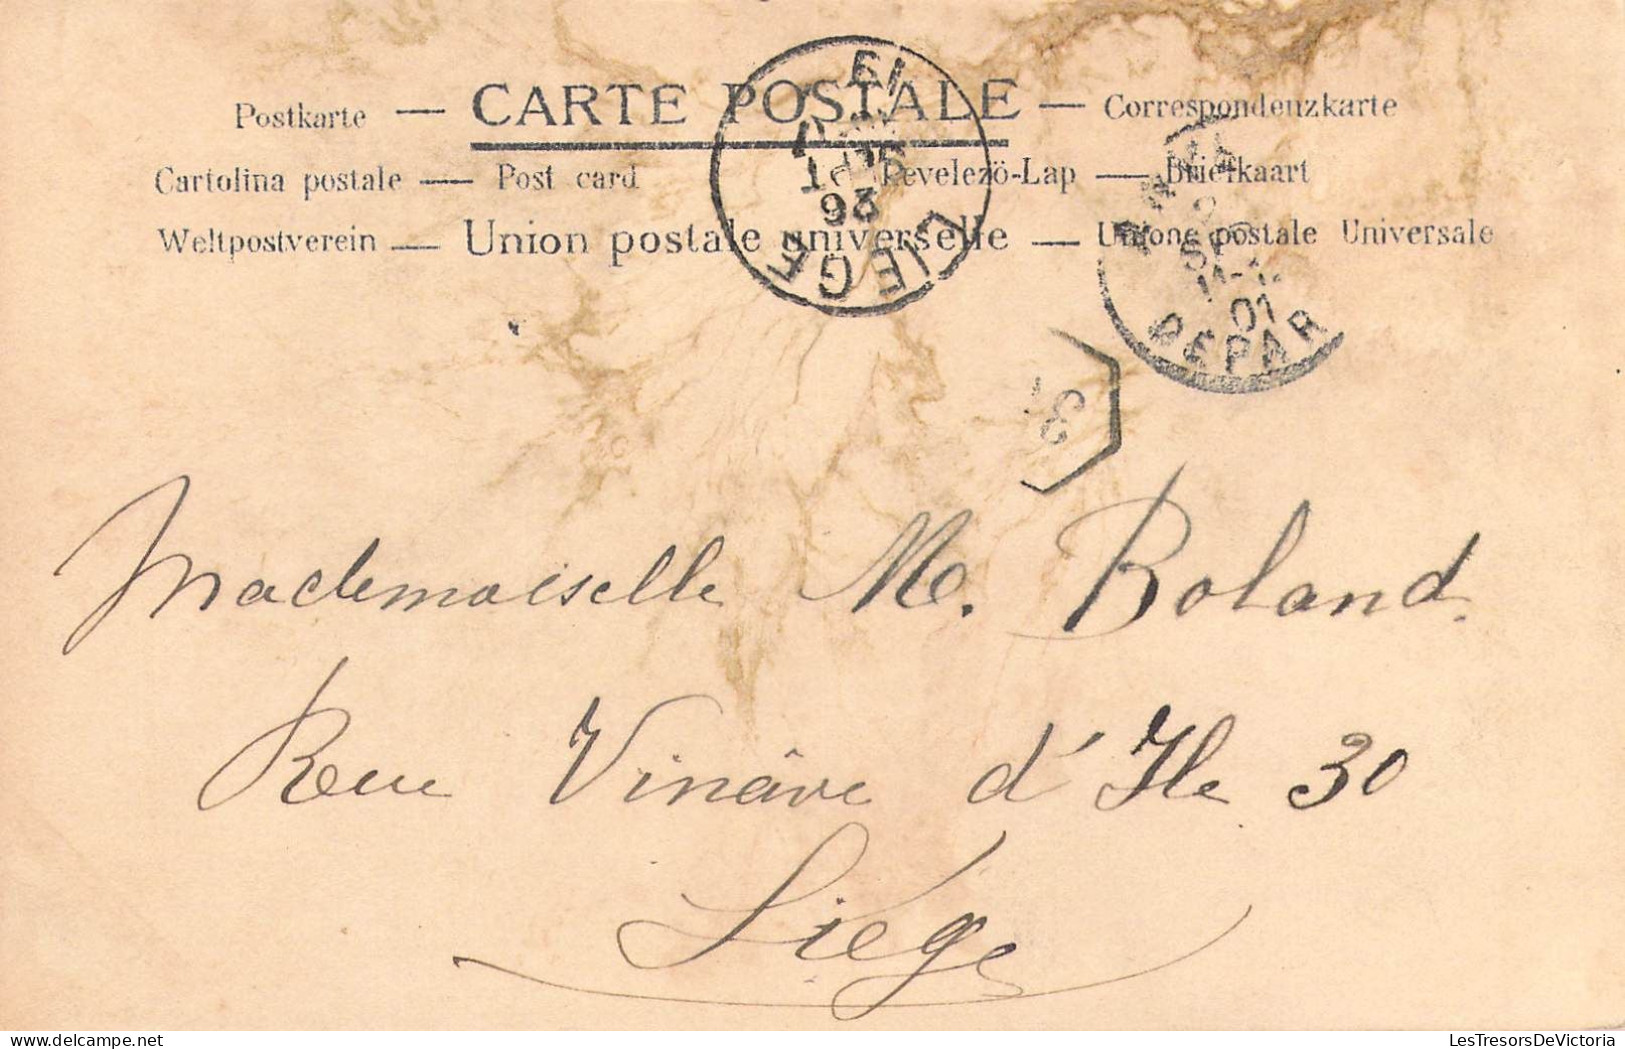 Postkarte — CARTE POSTALE — Correspondenzkarte
Cartolina postale — Post card — Levelezö-Lap — Briefkaart
Weltpostverein — Union postale universelle — Unione postale Universale
LIEGE
26
SEPT
13
SEP
01
DEPAR
3
Mademoiselle M. Roland
Rue Vinâve d'Ile 30
Liége
LesTresorsDeVictoria